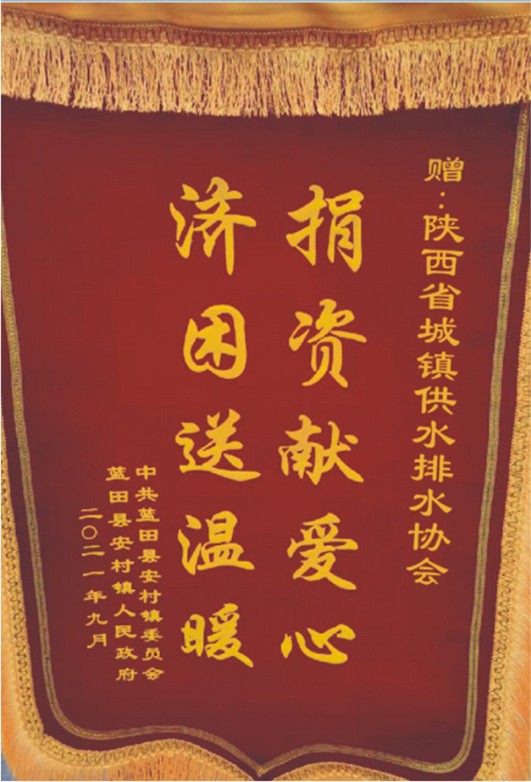 赠:陕西省城镇供水排水协会
捐资献爱心
济困送温暖
中共蓝田县安村镇委员会
蓝田县安村镇人民政府
二〇二一年九月